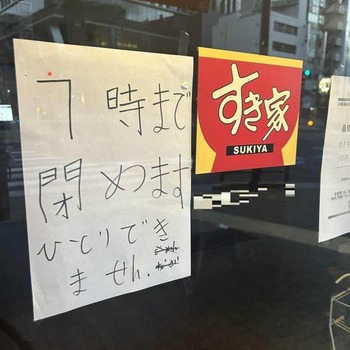 7 時まで
閉めます
ひとりでき
ません.
すき家
SUKIYA